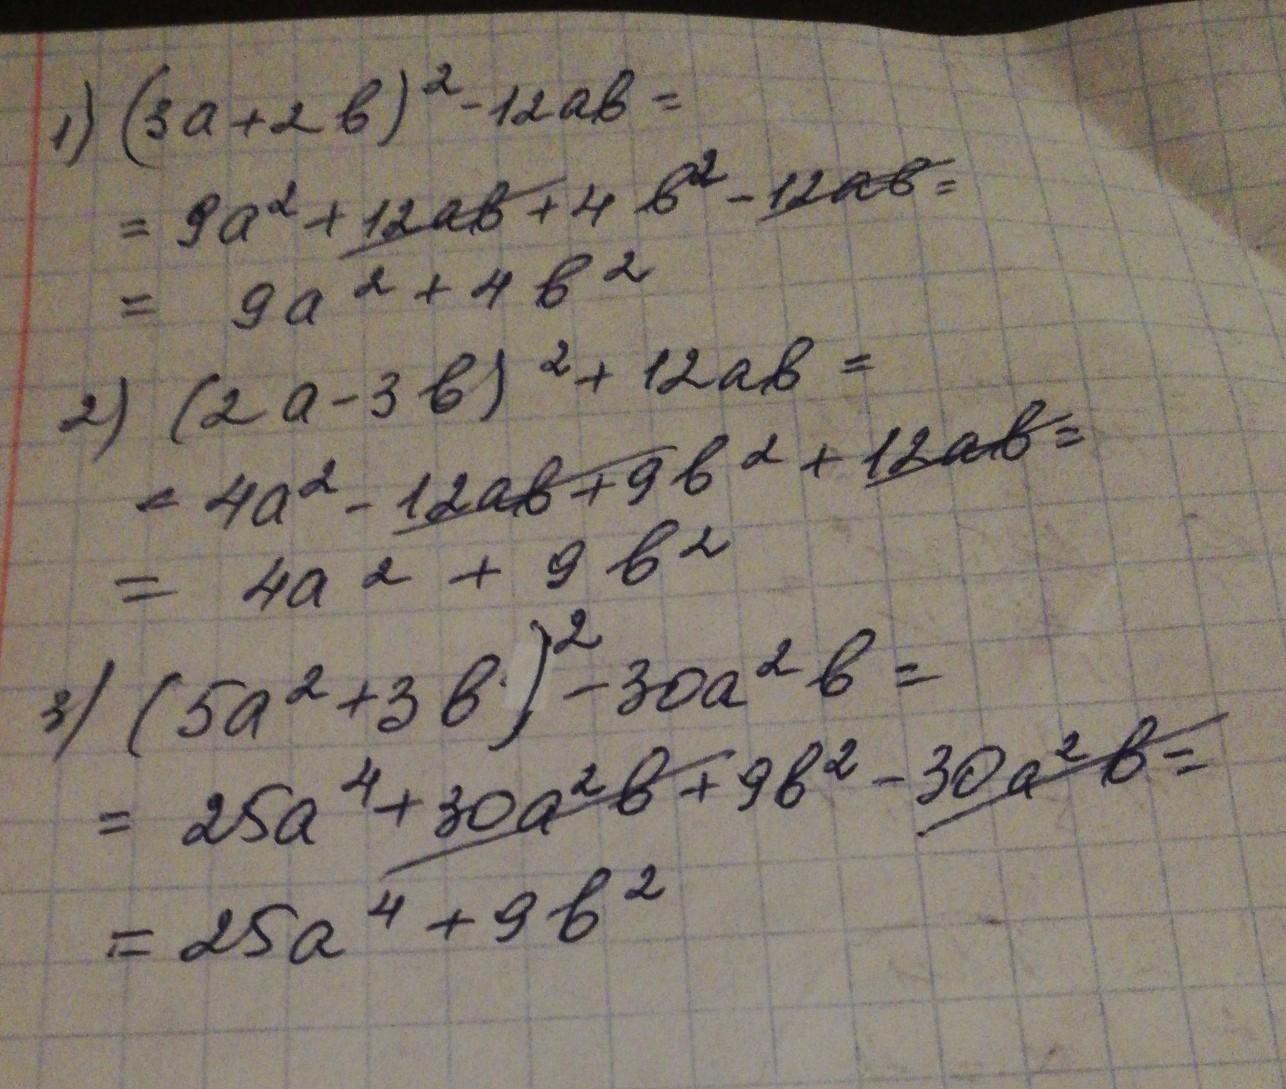 1) (3a+2b)²-12ab=
= 9a²+12ab+4b²-12ab=
= 9a²+4b²
2) (2a-3b)²+12ab=
= 4a²-12ab+9b²+12ab=
= 4a²+9b²
3) (5a²+3b)²-30a²b=
= 25a⁴+30a²b+9b²-30a²b=
= 25a⁴+9b²